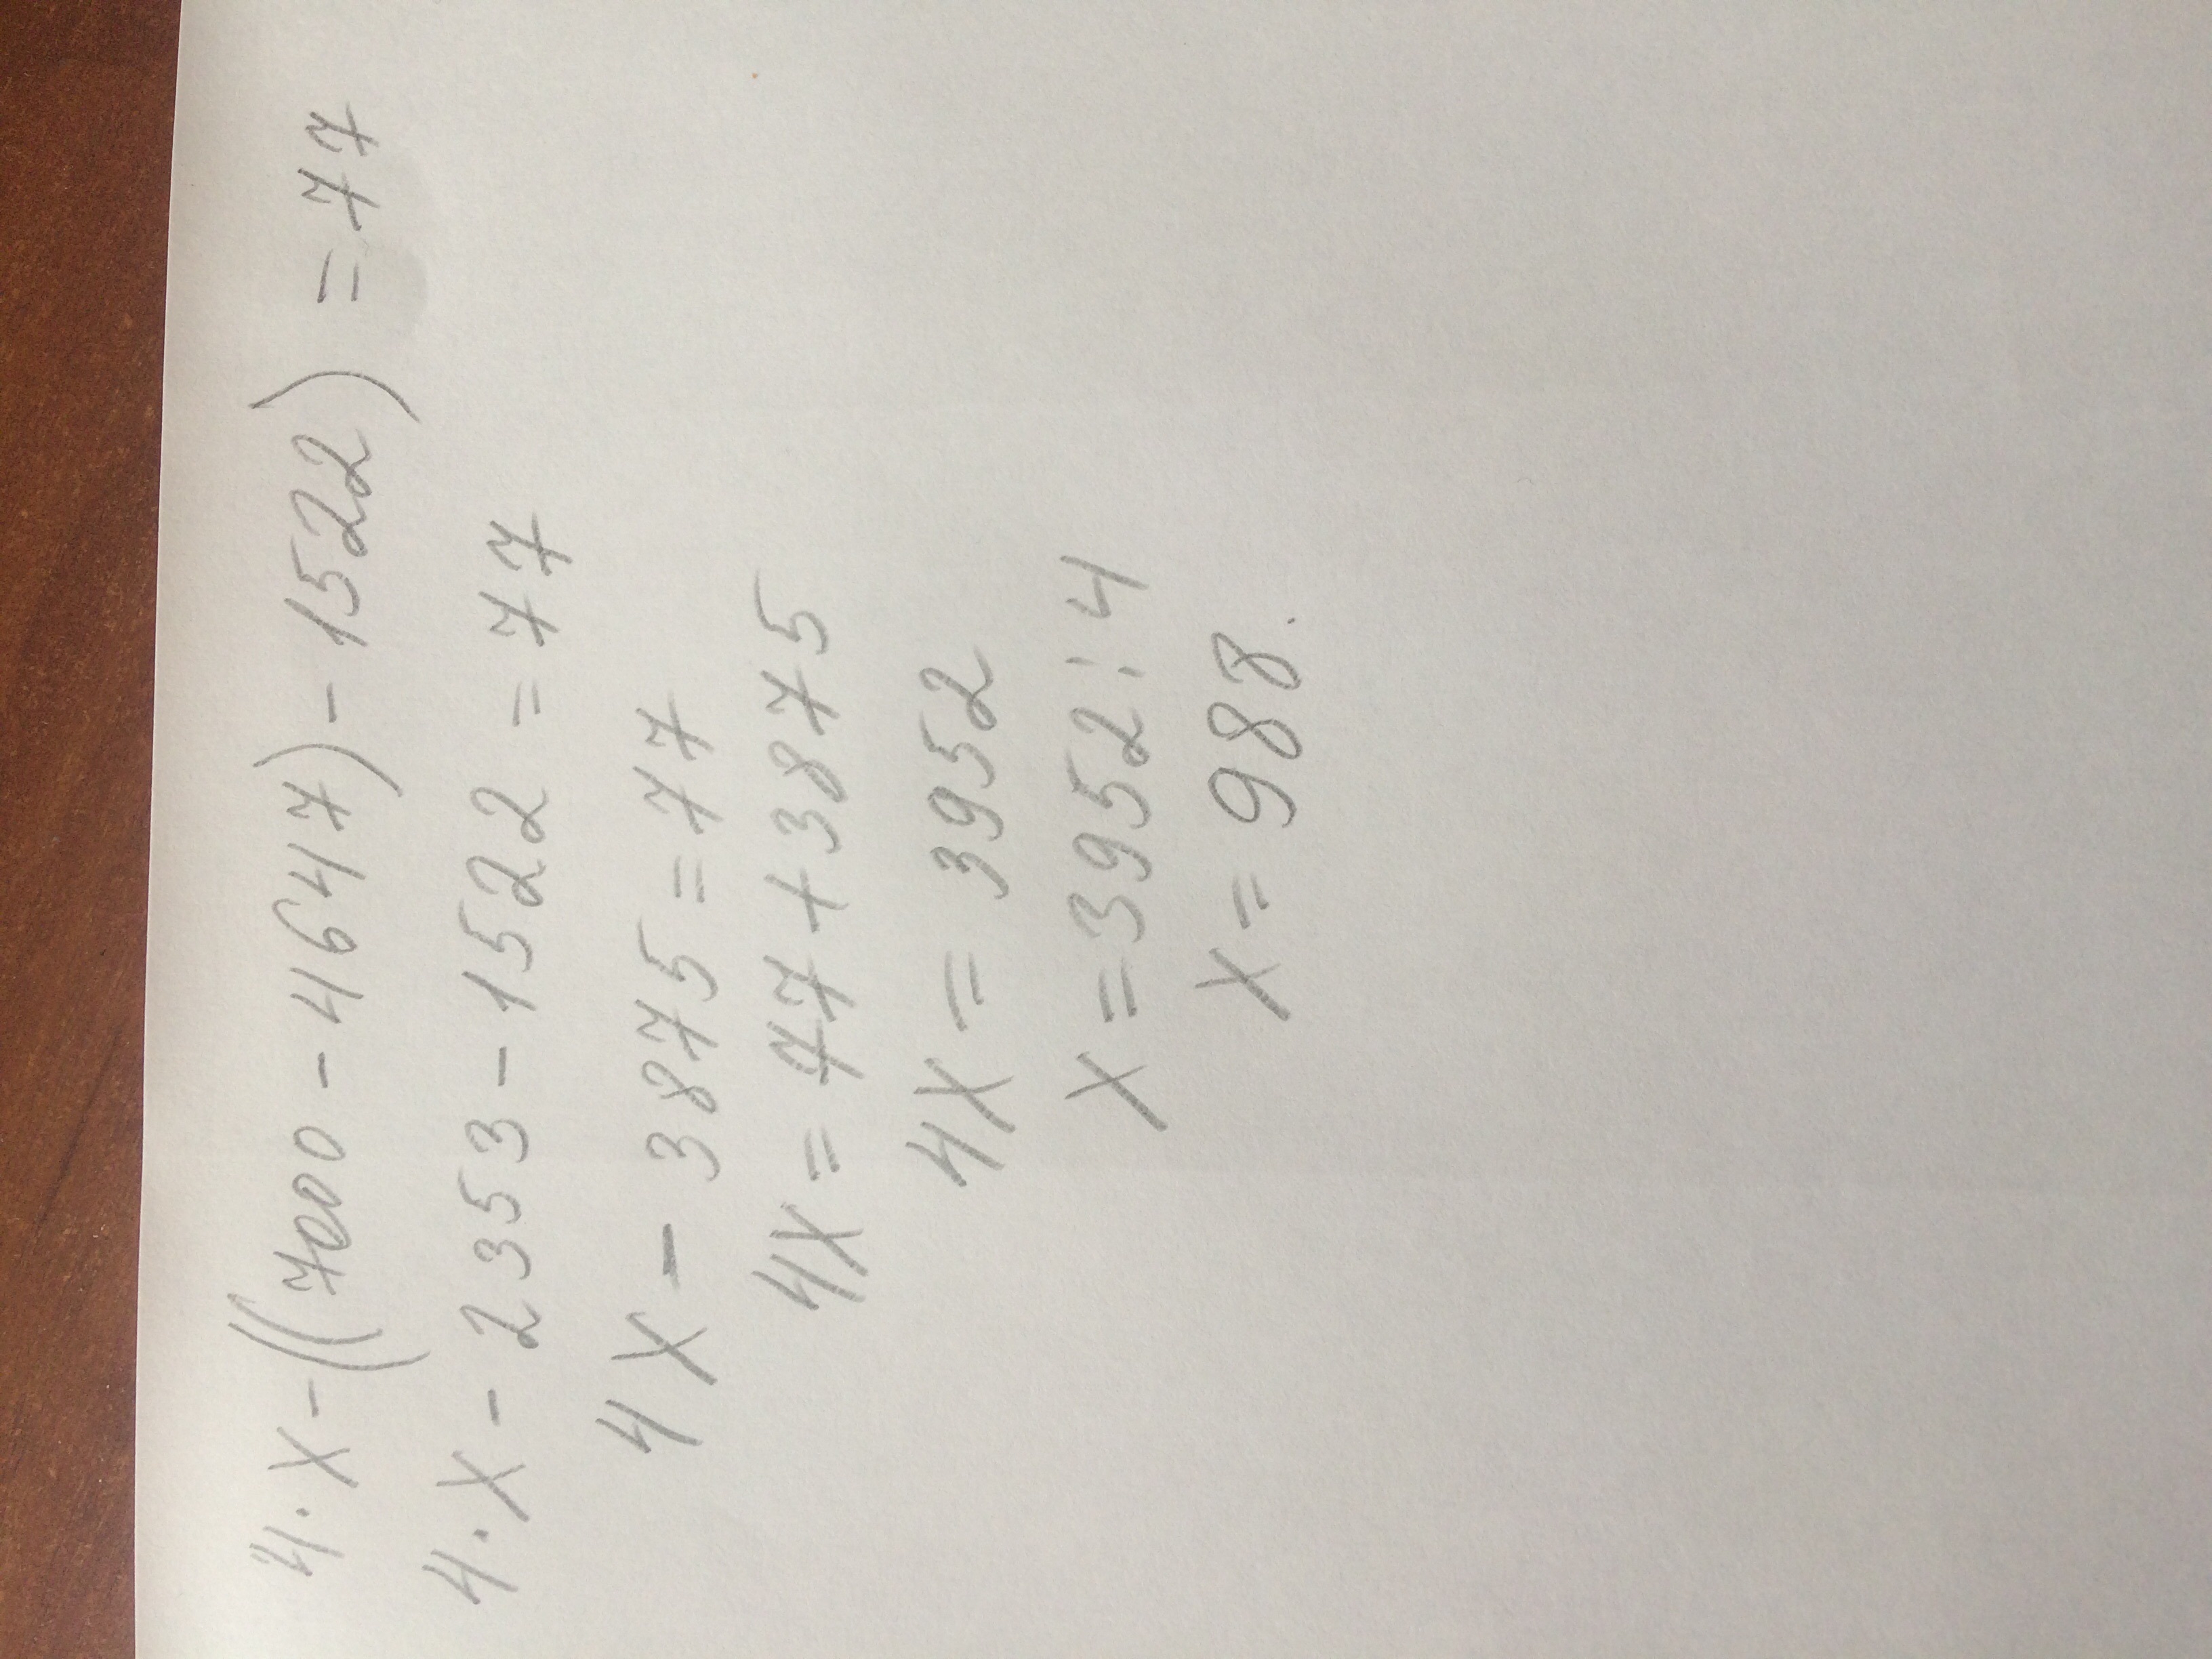 4·x-((7000-4647)-1522)=77
4·x-2353-1522=77
4x-3875=77
4x=77+3875
4x=3952
x=3952:4
x=988.